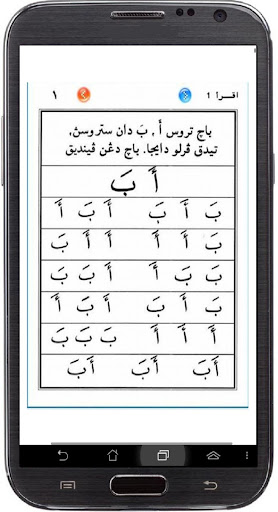 اقرأ 1 ١
باچ تروس أَ , بَ دان ستروسڽ,
تيدق ڤرلو دايجا. باچ دڠن ڤينديق
أَ بَ
بَ أَ بَ أَ بَ أَ
بَ بَ أَ أَ أَ بَ
بَ بَ أَ أَ بَ بَ
بَ أَ بَ أَ بَ أَ
أَ أَ أَ بَ بَ بَ
أَبَ أَبَ أَبَ